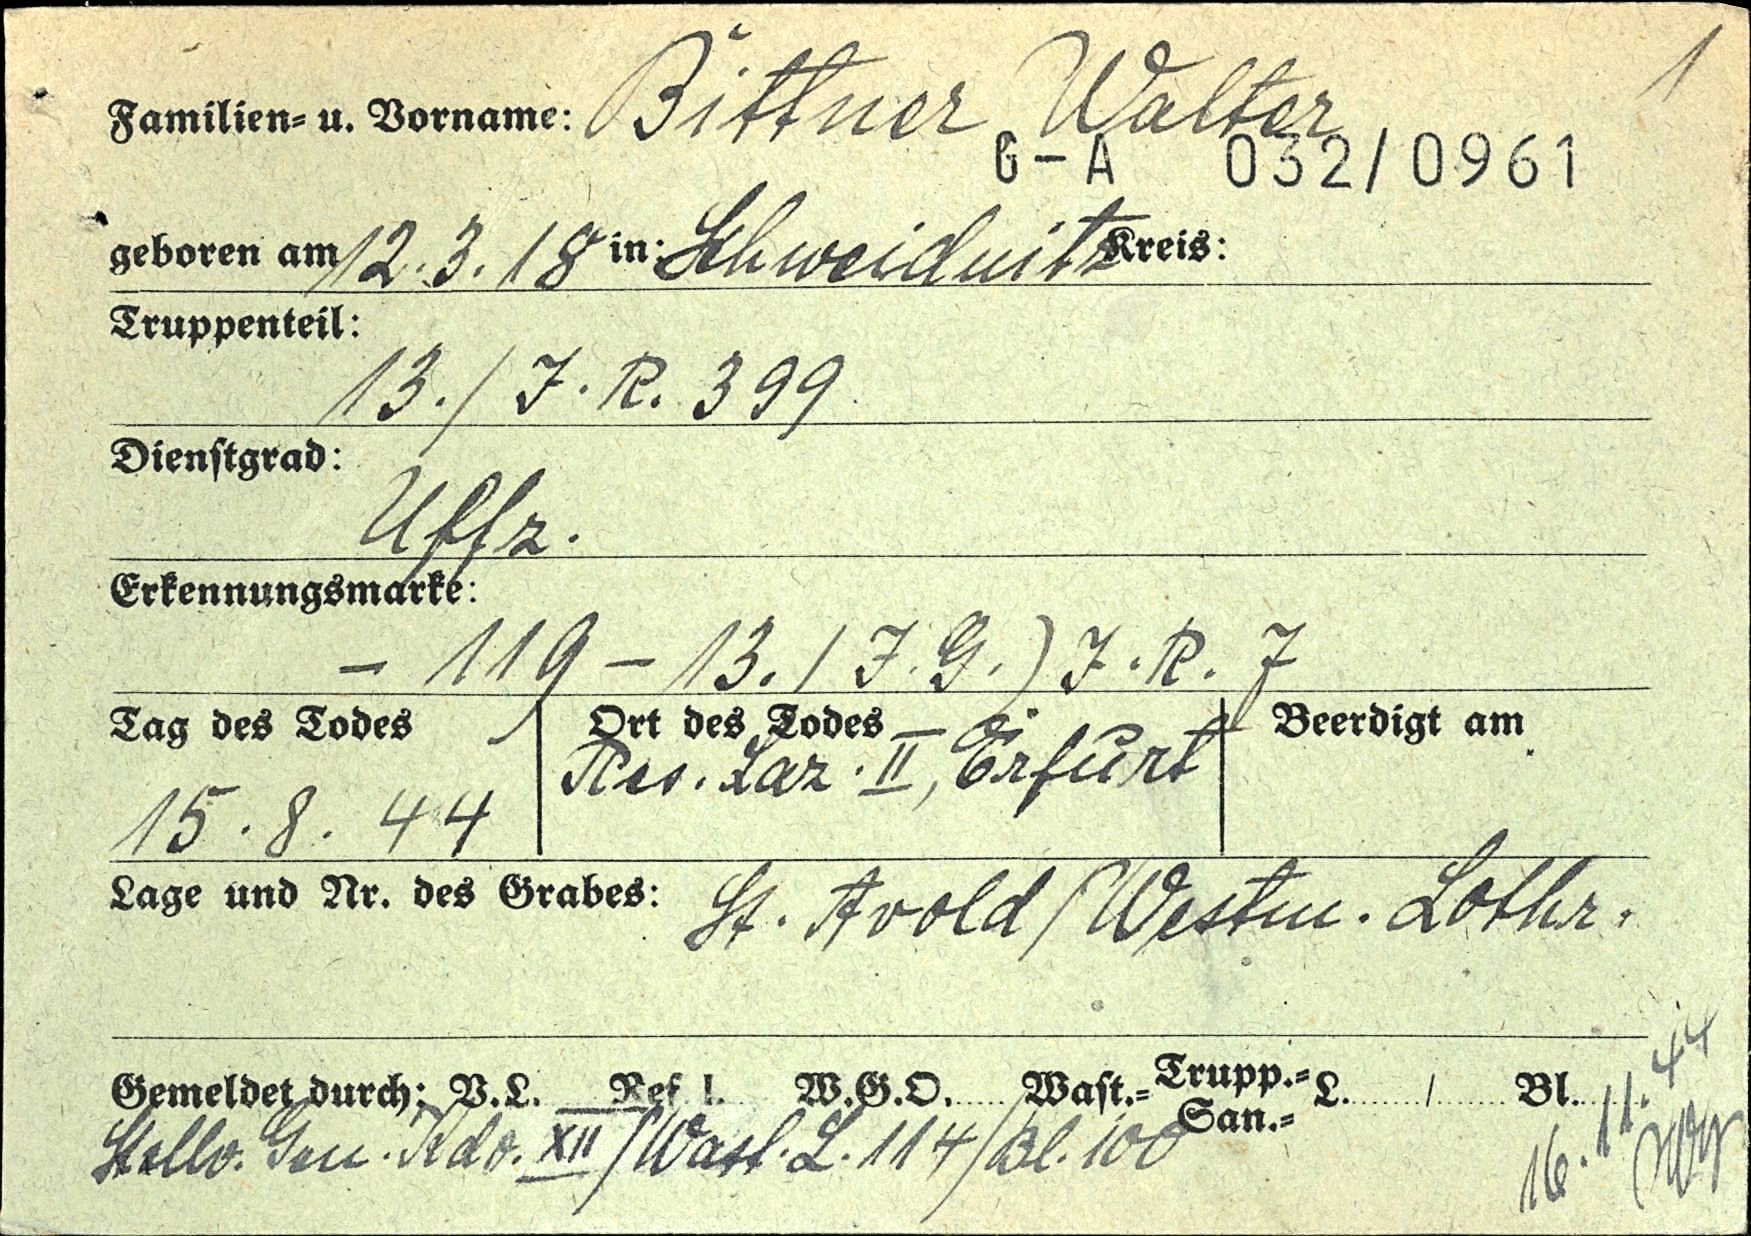 1
Familien- u. Vorname: Bittner Walter
G-A 032/0961
geboren am 12.3.18 in: Schweidnitz Kreis:
Truppenteil:
13./J.R. 399
Dienstgrad:
Uffz.
Erkennungsmarke:
- 119 - 13./J.G.) J.R. 7
Tag des Todes Ort des Todes Beerdigt am
15.8.44 Res. Laz. II, Erfurt
Lage und Nr. des Grabes: St. Avold/Westm. Lothr.
Gemeldet durch: V.L. Ref. !. W.G.O. Wast.- Trupp.- San.- L. / Bl.
Stellv. Gen. Kdo. XII/Wast. L. 114/Bl. 100
16.11.44